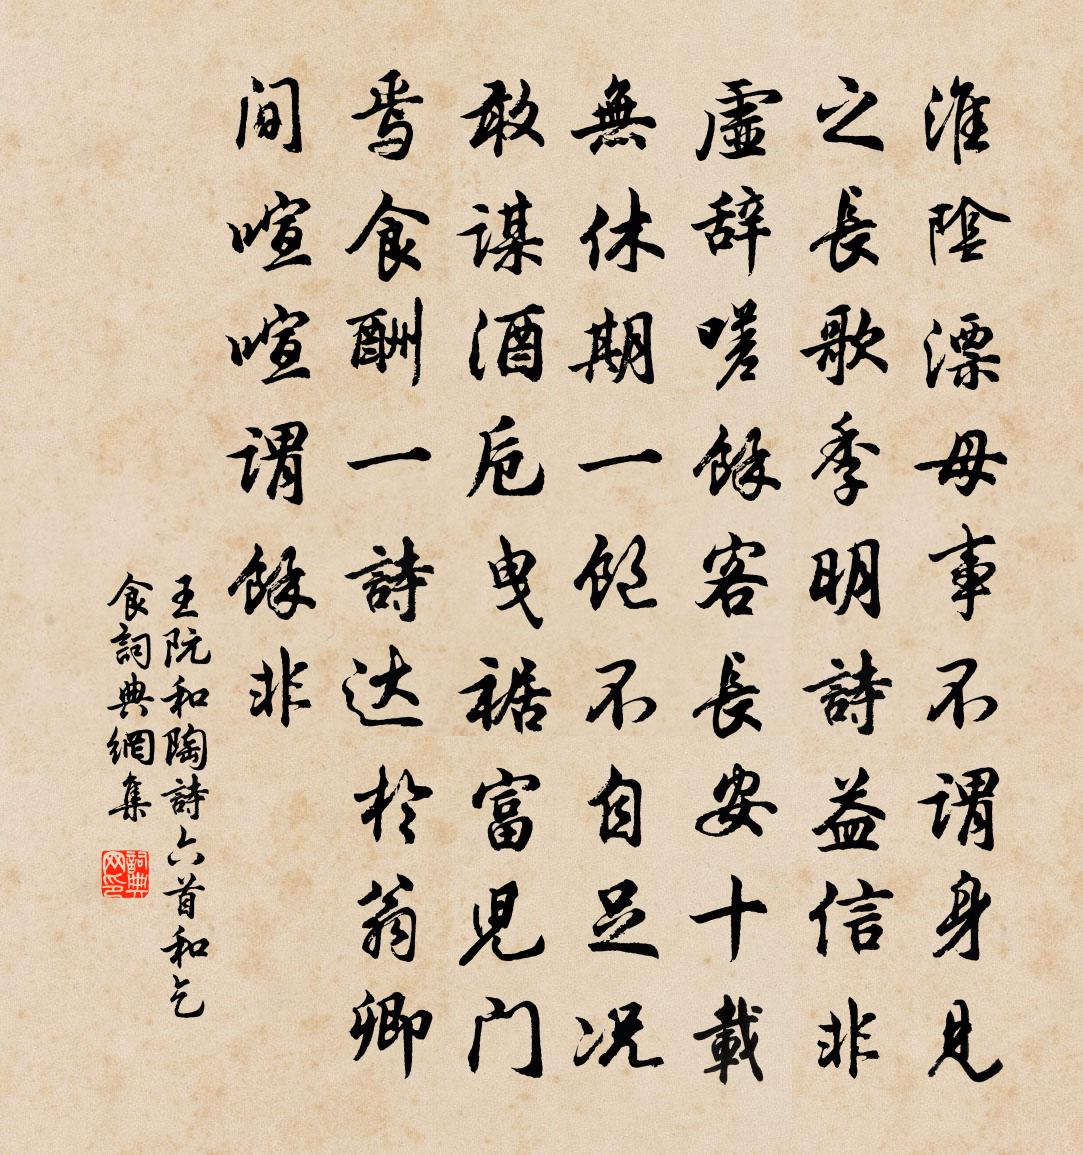 淮陰漂母事不謂身見
之長歌季明詩益信非
虛辞嗟餘客長安十載
無休期一飽不自足況
敢謀酒卮曳裾富児门
焉食酬一詩达於翁卿
间喧喧謂餘非
王阮和陶詩六首和乞
食詞典網集
詞典
网印